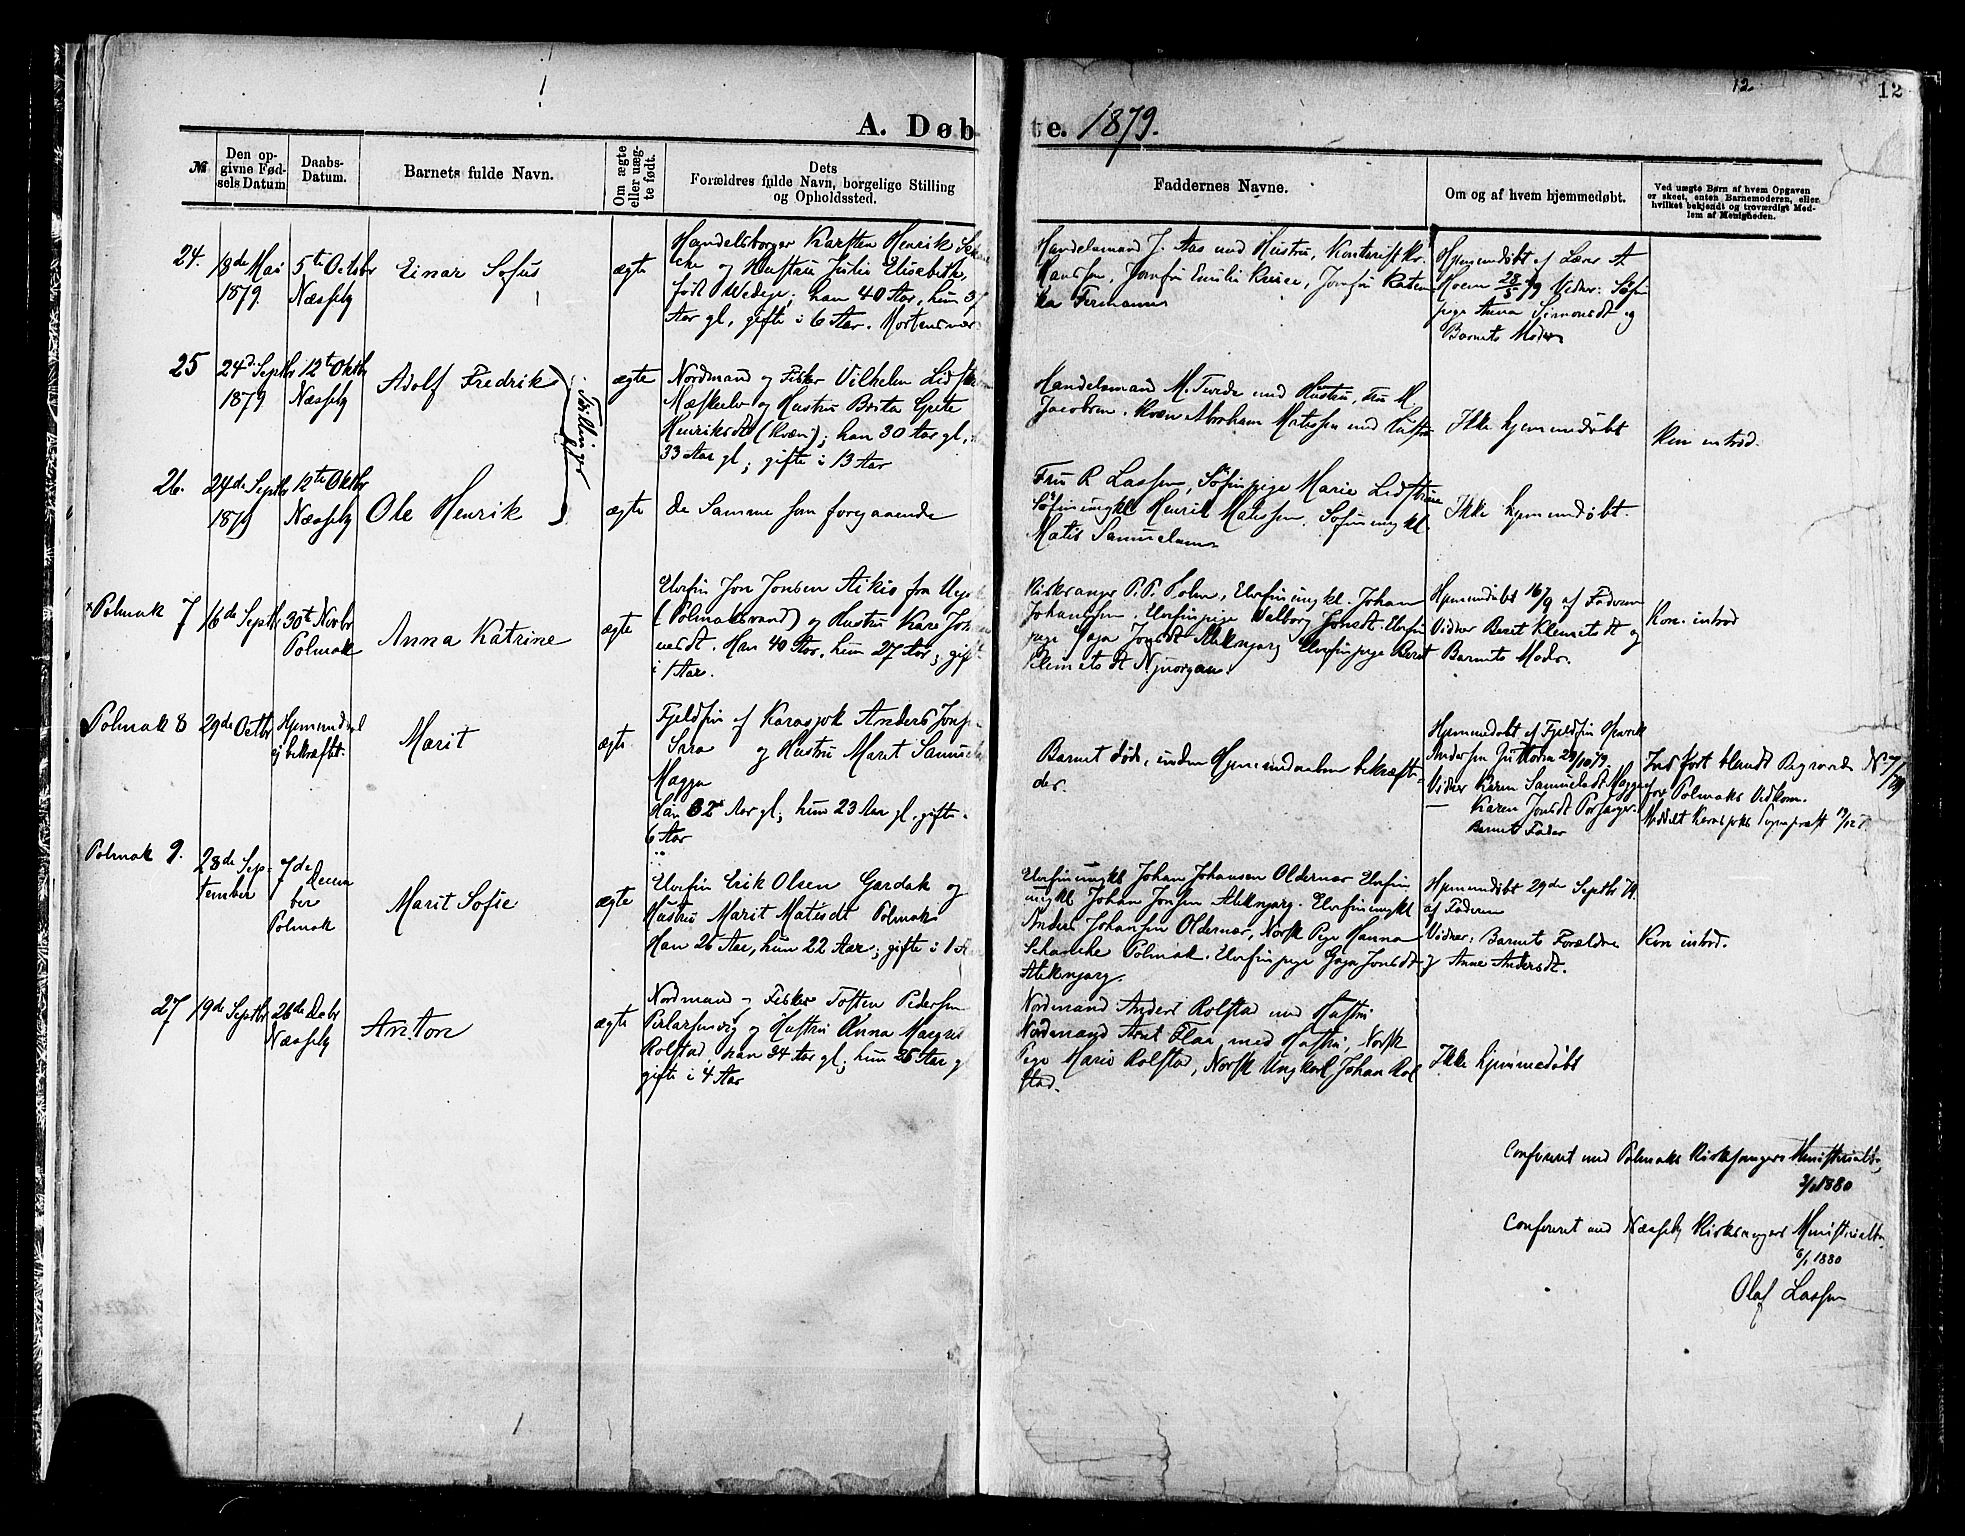 12.
12
A. Døbte. 1879.
№
Den opgivne Fødsels Datum
Daabs-Datum.
Barnets fulde Navn.
Om ægte eller uægte født.
Dets
Forældres fulde Navn, borgelige Stilling
og Opholdssted.
Faddernes Navne.
Om og af hvem hjemmedøbt.
Ved uægte Børn af hvem Opgaven
er skeet, enten Barnemoderen, eller
hvilket bekjendt og troværdigt Med-
lem af Menigheden.
24.
18de Mai
1879.
5te Octobr
Næsseby
Einar Sofus
ægte
Handelsborger Karsten Henrik
og Hustru Julie Elisabeth,
født Wedege; han 40 Aar, hun 37
Aar gl, gifte i 6 Aar. Mortensnæs
Handelsmand J. Aas med Hustru,
Hansen, Jomfru Emilie
Hjemmedøbt af Lærer A.
Hoem 28/5 79 Vidner:
pige Anna Simonsdt og
Barnets Moder
25
24d Septbr
1879
12te Oktbr
Næsseby
Adolf Fredrik
Tvillinger
ægte
Nordmand og Fisker Vilhelm
og Hustru Brita Grete
Henriksdt (kvæn); han 30 Aar gl,
33 Aar gl; gifte i 13 Aar
Handelsmand M. med Hustru, Fru M.
Jacobsen. Kvæn Abraham Matissen med Hustru
Ikke hjemmedøbt
Kon introd.
26.
24de Septbr
1879
12te Oktbr
Næsseby
Ole Henrik
ægte
de Samme som foregaaende
Fru R Lassen, Søfinpige Marie
Søfinungkl Henrik Matissen, Søfinungkl
Matis Samuelsen
Ikke hjemmedøbt.
Polmak 7
16de Septbr
30te Novbr
Polmak
Anna Katrine
ægte
Elvefin Jon Jonsen Aikio fra
(Polmakvand) og Hustru
Han 40 Aar, hun 27 Aar; gift
i 1 Aar.
Kirkesanger P. P. Holm, Elvefinungkl. Johan
Johanssen, Elvefinpige Valborg Jonsdt. Elvefin
pige Gaja Jonsdt Aleknjarg Elvefinpige Beret
Klemetsdt Njuorgan.
Hjemmedøbt 16/9 af Faderen
Vidner Beret Klemetsdt og
Barnets Moder.
Kon. introd
Polmak 8
29de Octbr
Hjemmedaab
ej bekræftet.
Marit
ægte
Fjeldfin af Karasjok Anders
Sara og Hustru Marit
Magga
Han 32 Aar gl; hun 23 Aar gl, gifte i
6 Aar
Barnet døde, inden Hjemmedaaben bekræfte-
des.
Hjemmedøbt af Fjeldfin Henrik
Andersen Guttorm 29/10 79.
Vidner Karen Samuelsdt Magga
Karen Jonsdt Porsanger.
Barnets Fader
Indført blandt Begravede No 7/79
for Polmaks Vidkom.
Polmak 9.
28de Sep-
tember
7de Decem
ber
Polmak
Marit Sofie
ægte
Elvefin Erik Olsen Gardak og
Hustru Marit Matisdt Polmak
Han 26 Aar, hun 22 Aar; gifte i 1 Aar
Elvefinungkl Johan Johansen Oldernæs Elvefin
ungkl Johan Jonsen Aleknjarg. Elvefinungkl
Anders Johansen Oldernæs, Norsk Pige Hanna
Schanche Polmak. Elvefinpige Gaja Jonsdt
Aleknjarg.
Hjemmedøbt 29de Septbr 79.
af Faderen
Vidner: Barnets Forældre
og Anne Andersdt.
Kon introd.
27
19de Septbr
26de Decbr
Næsseby
Anton
ægte
Nordmand og Fisker Toften Pedersen
og Hustru Anna
Rolfstad, han 34 Aar gl; hun 26 Aar gl
gifte i 4 Aar
Nordmand Anders Rolfstad med Hustru
Nordmand med Hustru, Norsk
Pige Marie Rolfstad, Norsk Ungkarl Johan Rolf
stad.
Ikke hjemmedøbt
Confereret med Polmaks Kirkesangers Ministerialb.
1880
Confereret med Næsseby Kirkesangers Ministerialb.
6/1 1880
Olaf Lassen